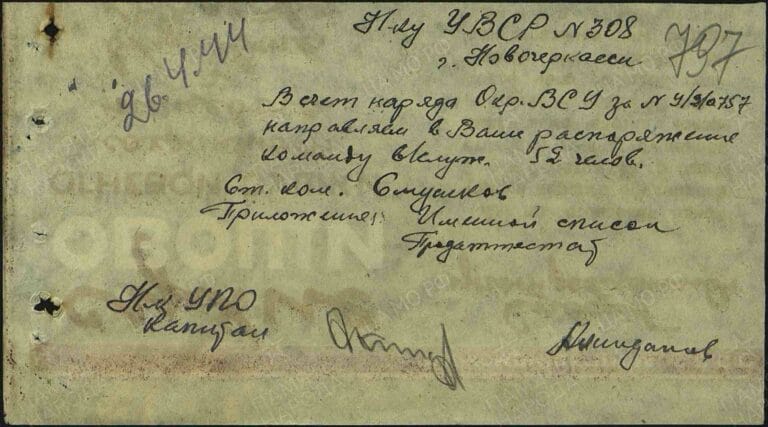 Н-ку УВСР N 308
797
г. Новочеркасск
26.4.44
В счет наряда Окр. ВСУ за N
направляем в Ваше распоряжение
команду в колуж. 52 челов.
Ст. ком.
Приложения: Именной список
Продаттестат
Н-к УПО
Капитан